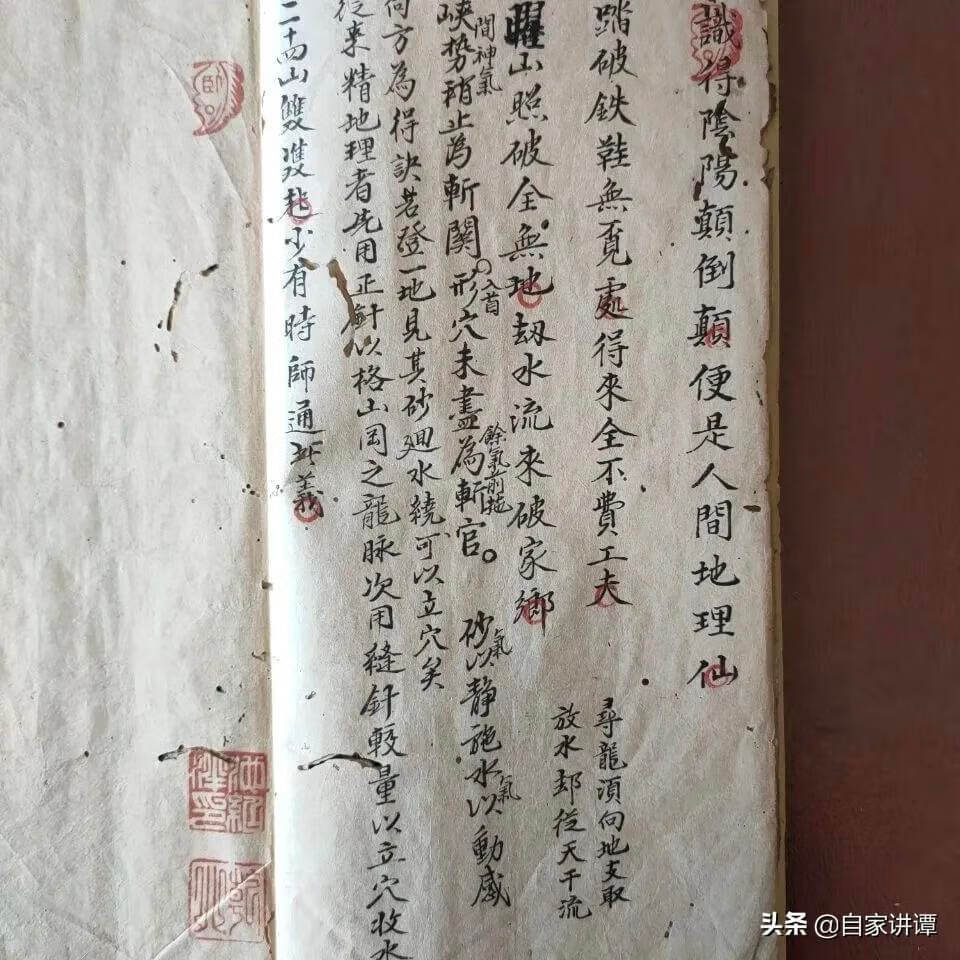 識得陰陽顛倒顛便是人間地理仙
踏破鉄鞋無覓處得來全不費工夫
尋龍須向地支取
放水却從天干流
曜山照破全無地刼水流來破家鄉
峽間神氣势稍止為斬關。入首形穴未盡餘氣前拖為斬官。
砂氣以靜施水氣以動感
何方為得訣若登一地見其砂廻水繞可以立穴矣
從来精地理者先用正針以格山岡之龍脉次用縫針較量以立穴收水
二十四山雙雙起少有時師通此義
头条 @自家讲谭